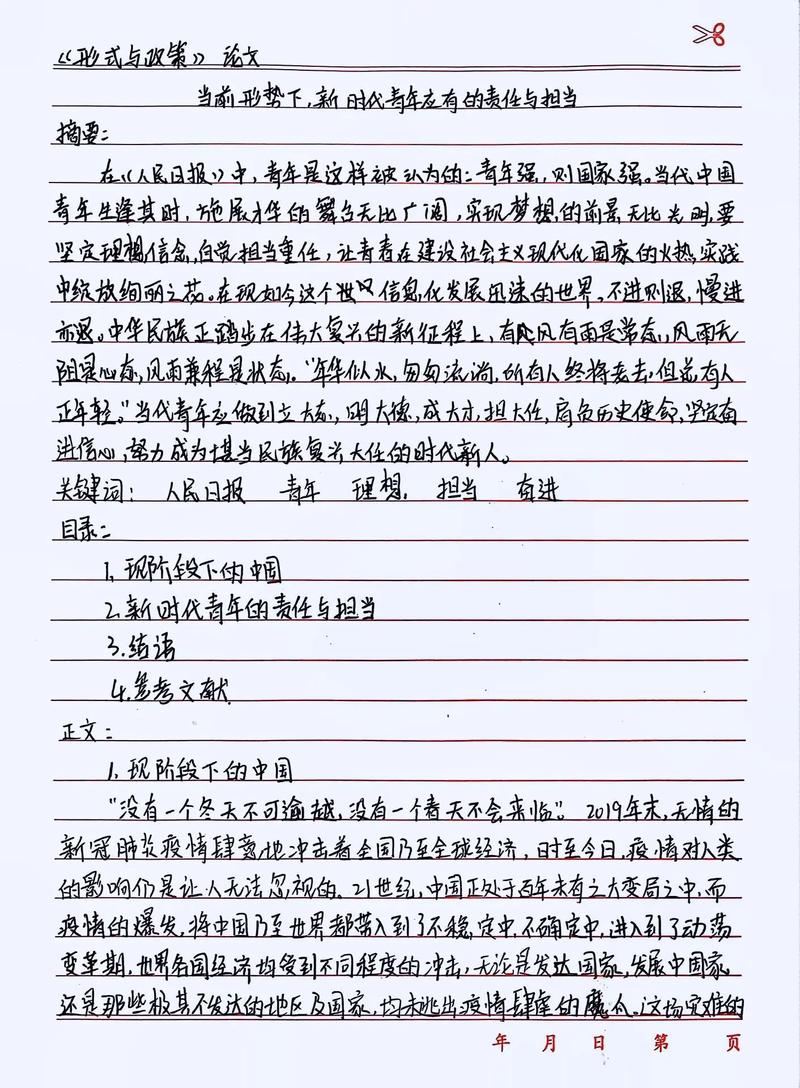 《形式与政策》 论文
当前形势下,新时代青年应有的责任与担当
摘要:
在《人民日报》中,青年是这样被认为的:青年强,则国家强。当代中国
青年生逢其时,施展才华的舞台无比广阔,实现梦想的前景无比光明,要
坚定理想信念,自觉担当重任,让青春在建设社会主义现代化国家的火热实践
中绽放绚丽之花。在现如今这个 信息化发展迅速的世界,不进则退,慢进
亦退。中华民族正踏步在伟大复兴的新征程上,有风有雨是常态,风雨无
阻是心态,风雨兼程是状态。“年华似水,匆匆流淌,所有人终将老去,但总有人
正年轻。”当代青年应做到立大志,明大德,成大才,担大任,肩负历史使命,坚定奋
进信心,努力成为堪当民族复兴大任的时代新人。
关键词: 人民日报 青年 理想 担当 奋进
目录:
1.现阶段下的中国
2.新时代青年的责任与担当
3.结语
4.参考文献
正文:
1.现阶段下的中国
“没有一个冬天不可逾越,没有一个春天不会来临”。2019年末,无情的
新冠肺炎疫情肆意地冲击着全国乃至全球经济,时至今日,疫情对人类
的影响仍是让人无法忽视的。21世纪,中国正处于百年未有之大变局之中,而
疫情的爆发,将中国乃至世界都带入到了不稳定中,不确定中,进入到了动荡
变革期,世界各国经济均受到不同程度的冲击,无论是发达国家,发展中国家
还是那些极其不发达的地区及国家,均未逃出疫情肆虐的魔爪。这场灾难的
年 月 日 第 页